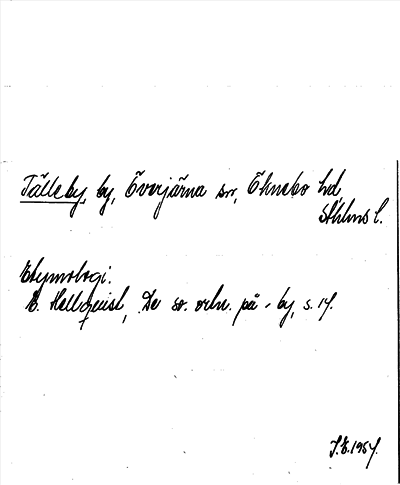 Tälleby, by, Överjärna sn, Öknebo hd,
Sthlms l.
Etymologi.
E. Hellquist, De sv. ortn. på -by, s. 14.
J.E. 1957.